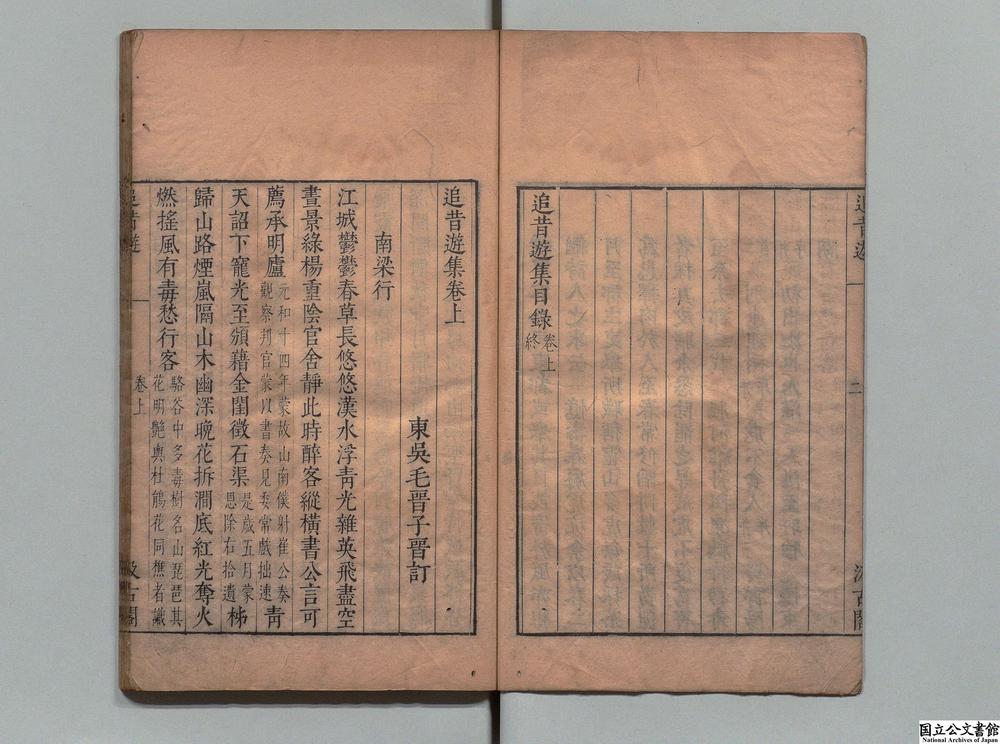 追昔遊
二
汲古閣
追昔遊集目錄 卷上終
追昔遊集卷上
東吳毛晉子晉訂
南梁行
江城鬱鬱春草長悠悠漢水浮靑光雜英飛盡空
晝景綠楊重陰官舍靜此時醉客縱橫書公言可
薦承明廬 元和十四年蒙故山南僕射崔公奏觀察判官蒙以書奏見委常戲拙速 靑
天詔下寵光至頒藉金閨徵石渠 是歲五月蒙恩除右拾遺 秭
歸山路煙嵐隔山木幽深晚花拆澗底紅光奪火
燃搖風有毒愁行客 駱谷中多毒樹名山琵琶其花明艷與杜鵑花同樵者識
追昔遊
卷上
一
汲古閣
国立公文書館
National Archives of Japan